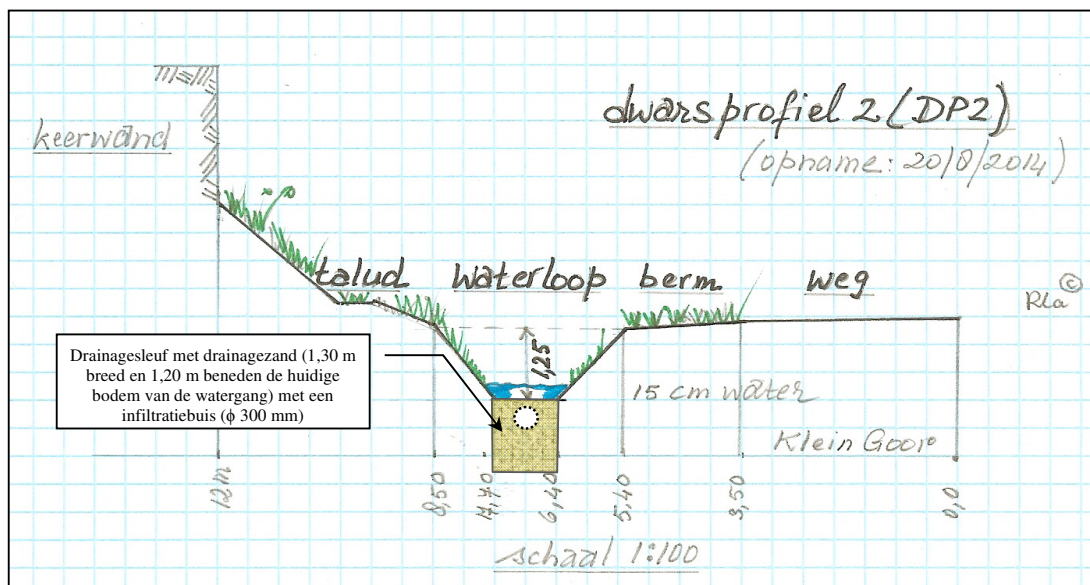 dwarsprofiel 2 (DP2)
(opname: 20/8/2014)
keerwand
talud waterloop berm weg
Rla ©
1,25
Drainagesleuf met drainagezand (1,30 m
breed en 1,20 m beneden de huidige
bodem van de watergang) met een
infiltratiebuis (ϕ 300 mm)
15 cm water
Klein Goor
12m 8,50 7,70 6,40 5,40 3,50 0,0
schaal 1:100